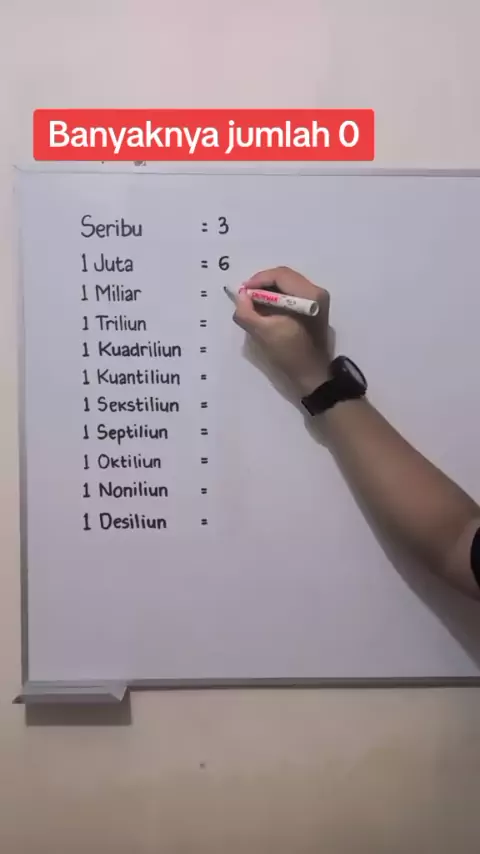 Banyaknya jumlah 0
Seribu = 3
1 Juta = 6
1 Miliar =
1 Triliun =
1 Kuadriliun =
1 Kuantiliun =
1 Sekstiliun =
1 Septiliun =
1 Oktiliun =
1 Noniliun =
1 Desiliun =
SNOWMAN